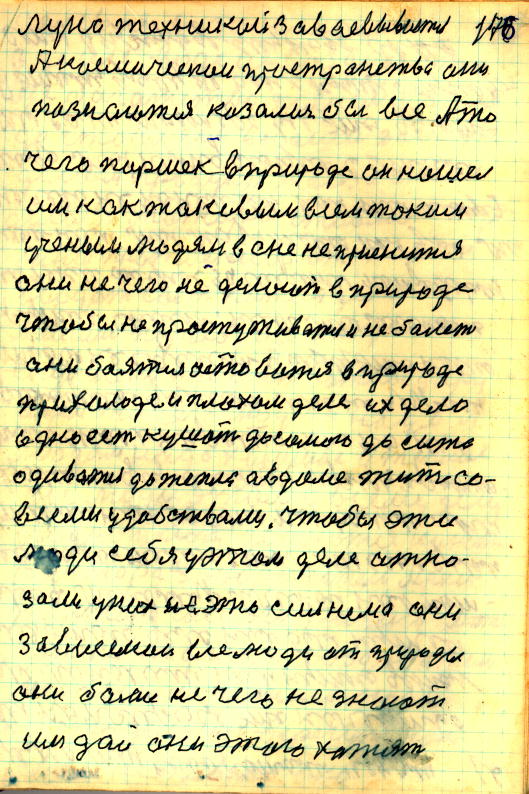 луна техникой заваевывоется 176
А космическом пространства они
познаются казалось бы все. А то
чего поршек в природе он нашел
им как таковым всем таким
ученым людям в сне не приснится
они не чего не делоют в природе
чтобы не простуживатся и не балеть
они баятся астоватся в природе
при холоде и плохом деле их дело
одно есть кушоть досамого до сыта
одиватся до тепла авдоме жить со-
всеми удобствами. чтобы эти
люди себя уэтом деле атка-
зали у них не это сил нема они
зависемаи все люди от природы
они более не чего не знают
им дай они этого хатят